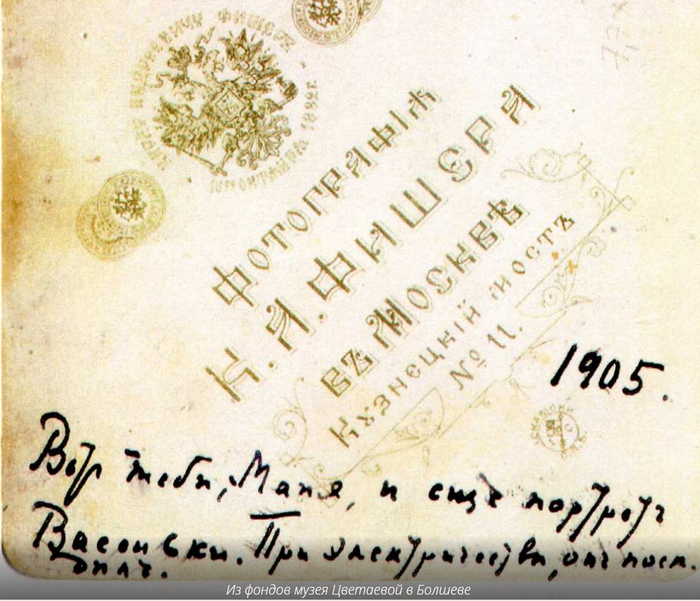 ФОТОГРАФІЯ
К. А. ФИШЕРА
ВЪ МОСКВѢ
КУЗНЕЦКІЙ МОСТЪ
№ 11.
1905.
Вот тебѣ, Маня, и еще портретъ
При электричествѣ, онъ
Из фондов музея Цветаевой в Болшеве